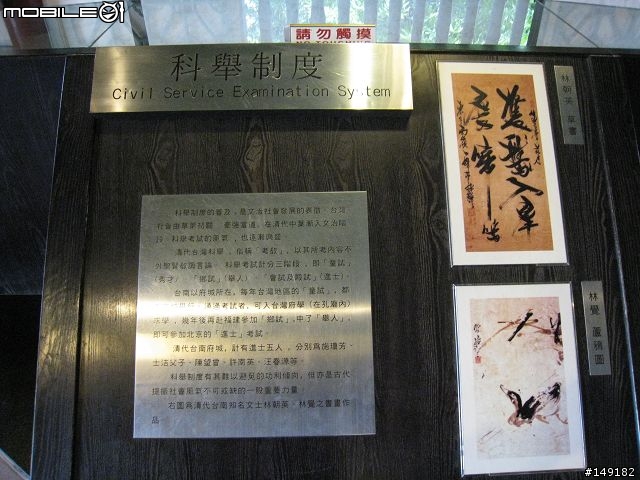 MOBILE01
請勿觸摸
NO TOUCHING
科舉制度
Civil Service Examination System
林朝英 草書
科舉制度的普及，是文治社會發展的表徵。台灣
社會由草萊初闢、豪強當道，在清代中葉漸入文治階
段，科舉考試的風氣，也逐漸興盛。
清代台灣科舉，俗稱「考放」，以其所考內容不
外聖賢
言論。科舉考試計分三階段，即「童試」
(秀才)、「鄉試」(舉人)、「會試及殿試」(進士)。
台南以府城所在，每年台灣地區的「童試」，都
通過考試者，可入台灣府學(在孔廟內)
幾年後再赴福建參加「鄉試」，中了「舉人」，
即可參加北京的「進士」考試。
清代台南府城，計有進士五人，分別為施瓊芳、
士洁父子、陳望曾、許南英、汪春源等。
科舉制度有其難以避免的功利傾向，但亦是古代
提振社會風氣不可或缺的一股重要力量。
右圖為清代台南知名文士林朝英、林覺之書畫作
品。
林覺 蘆鴨圖
#149182